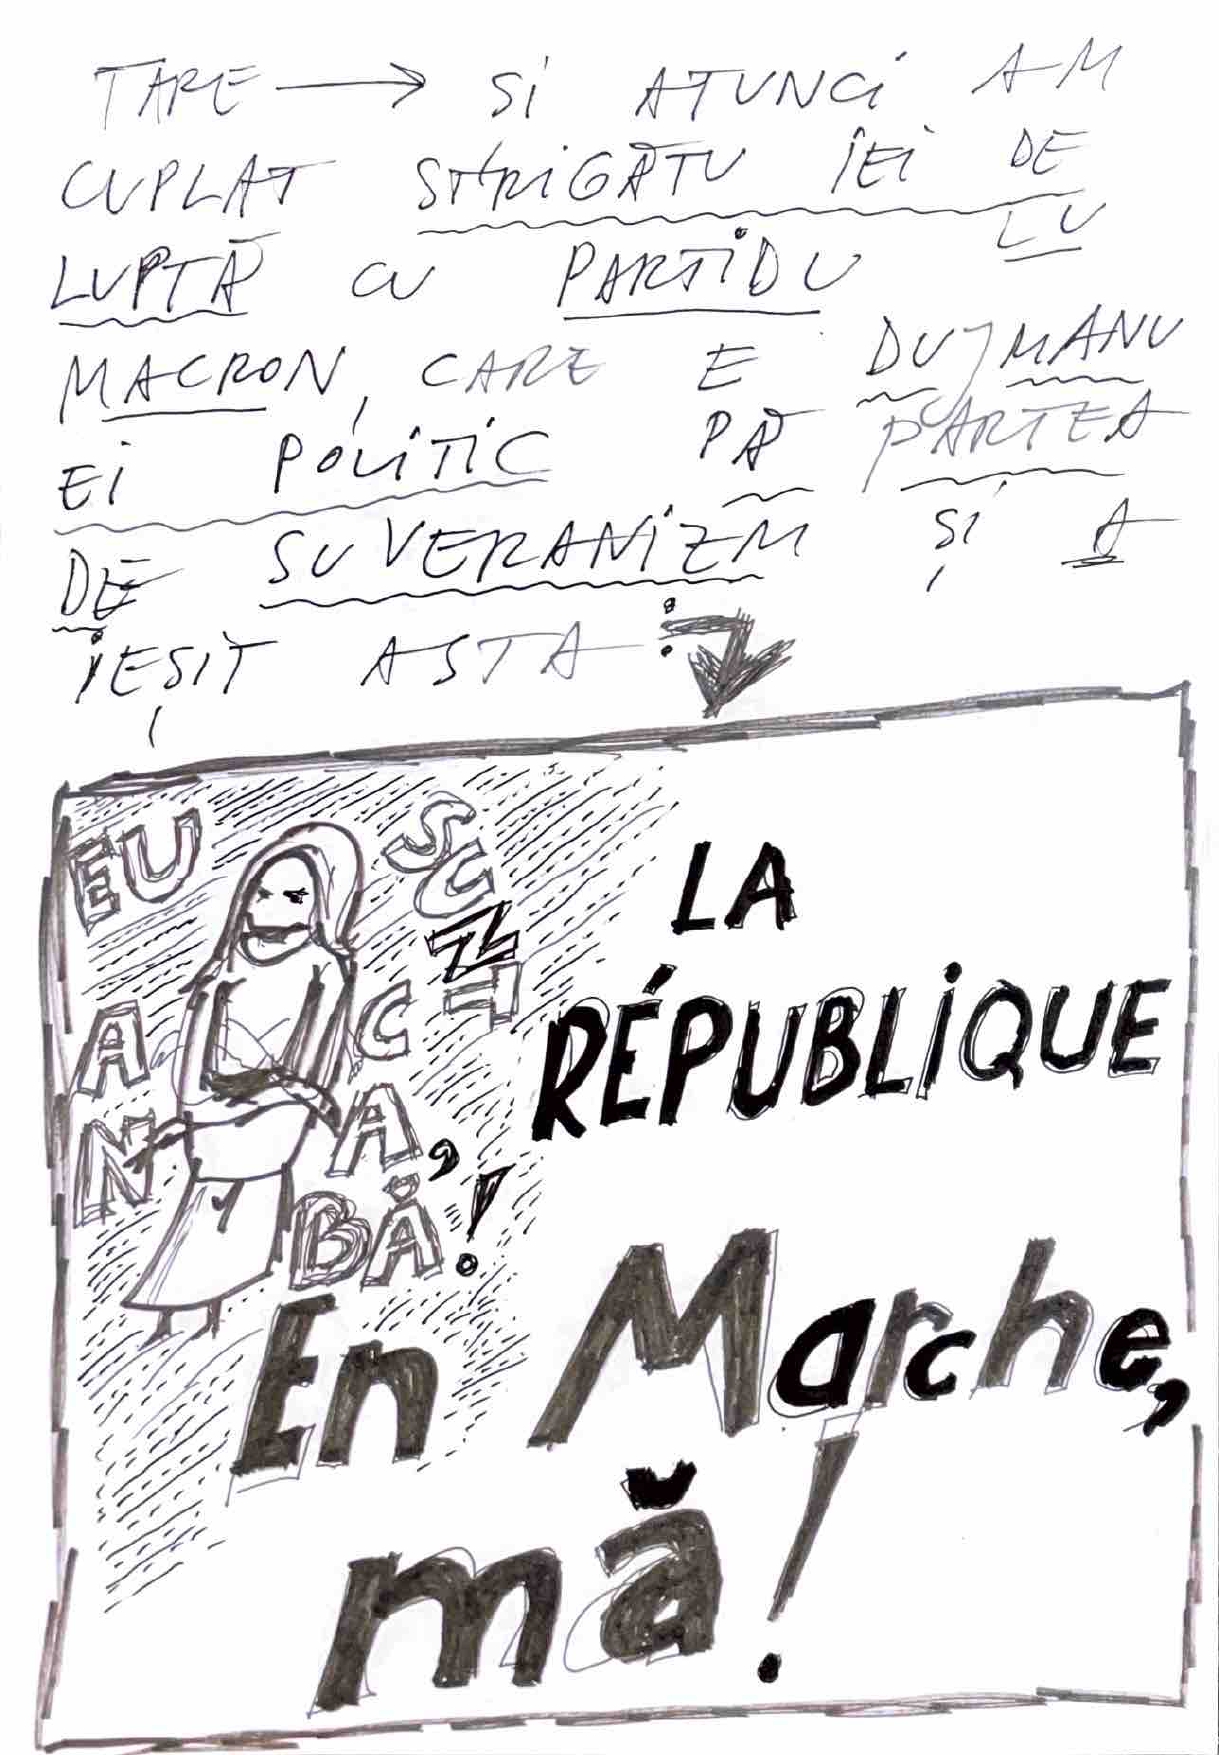 TARE → SI ATUNCI AM
CUPLAT STRIGĂTU IEI DE
LUPTĂ CU PARTIDU LU
MACRON, CARE E DUȘMANU
EI POLITIC PĂ PARTEA
DE SUVERANIZM ȘI A
IEȘIT ASTA:
EU
AM
SCUZII
CA,
BĂ!
LA
RÉPUBLIQUE
En Marche,
mă!